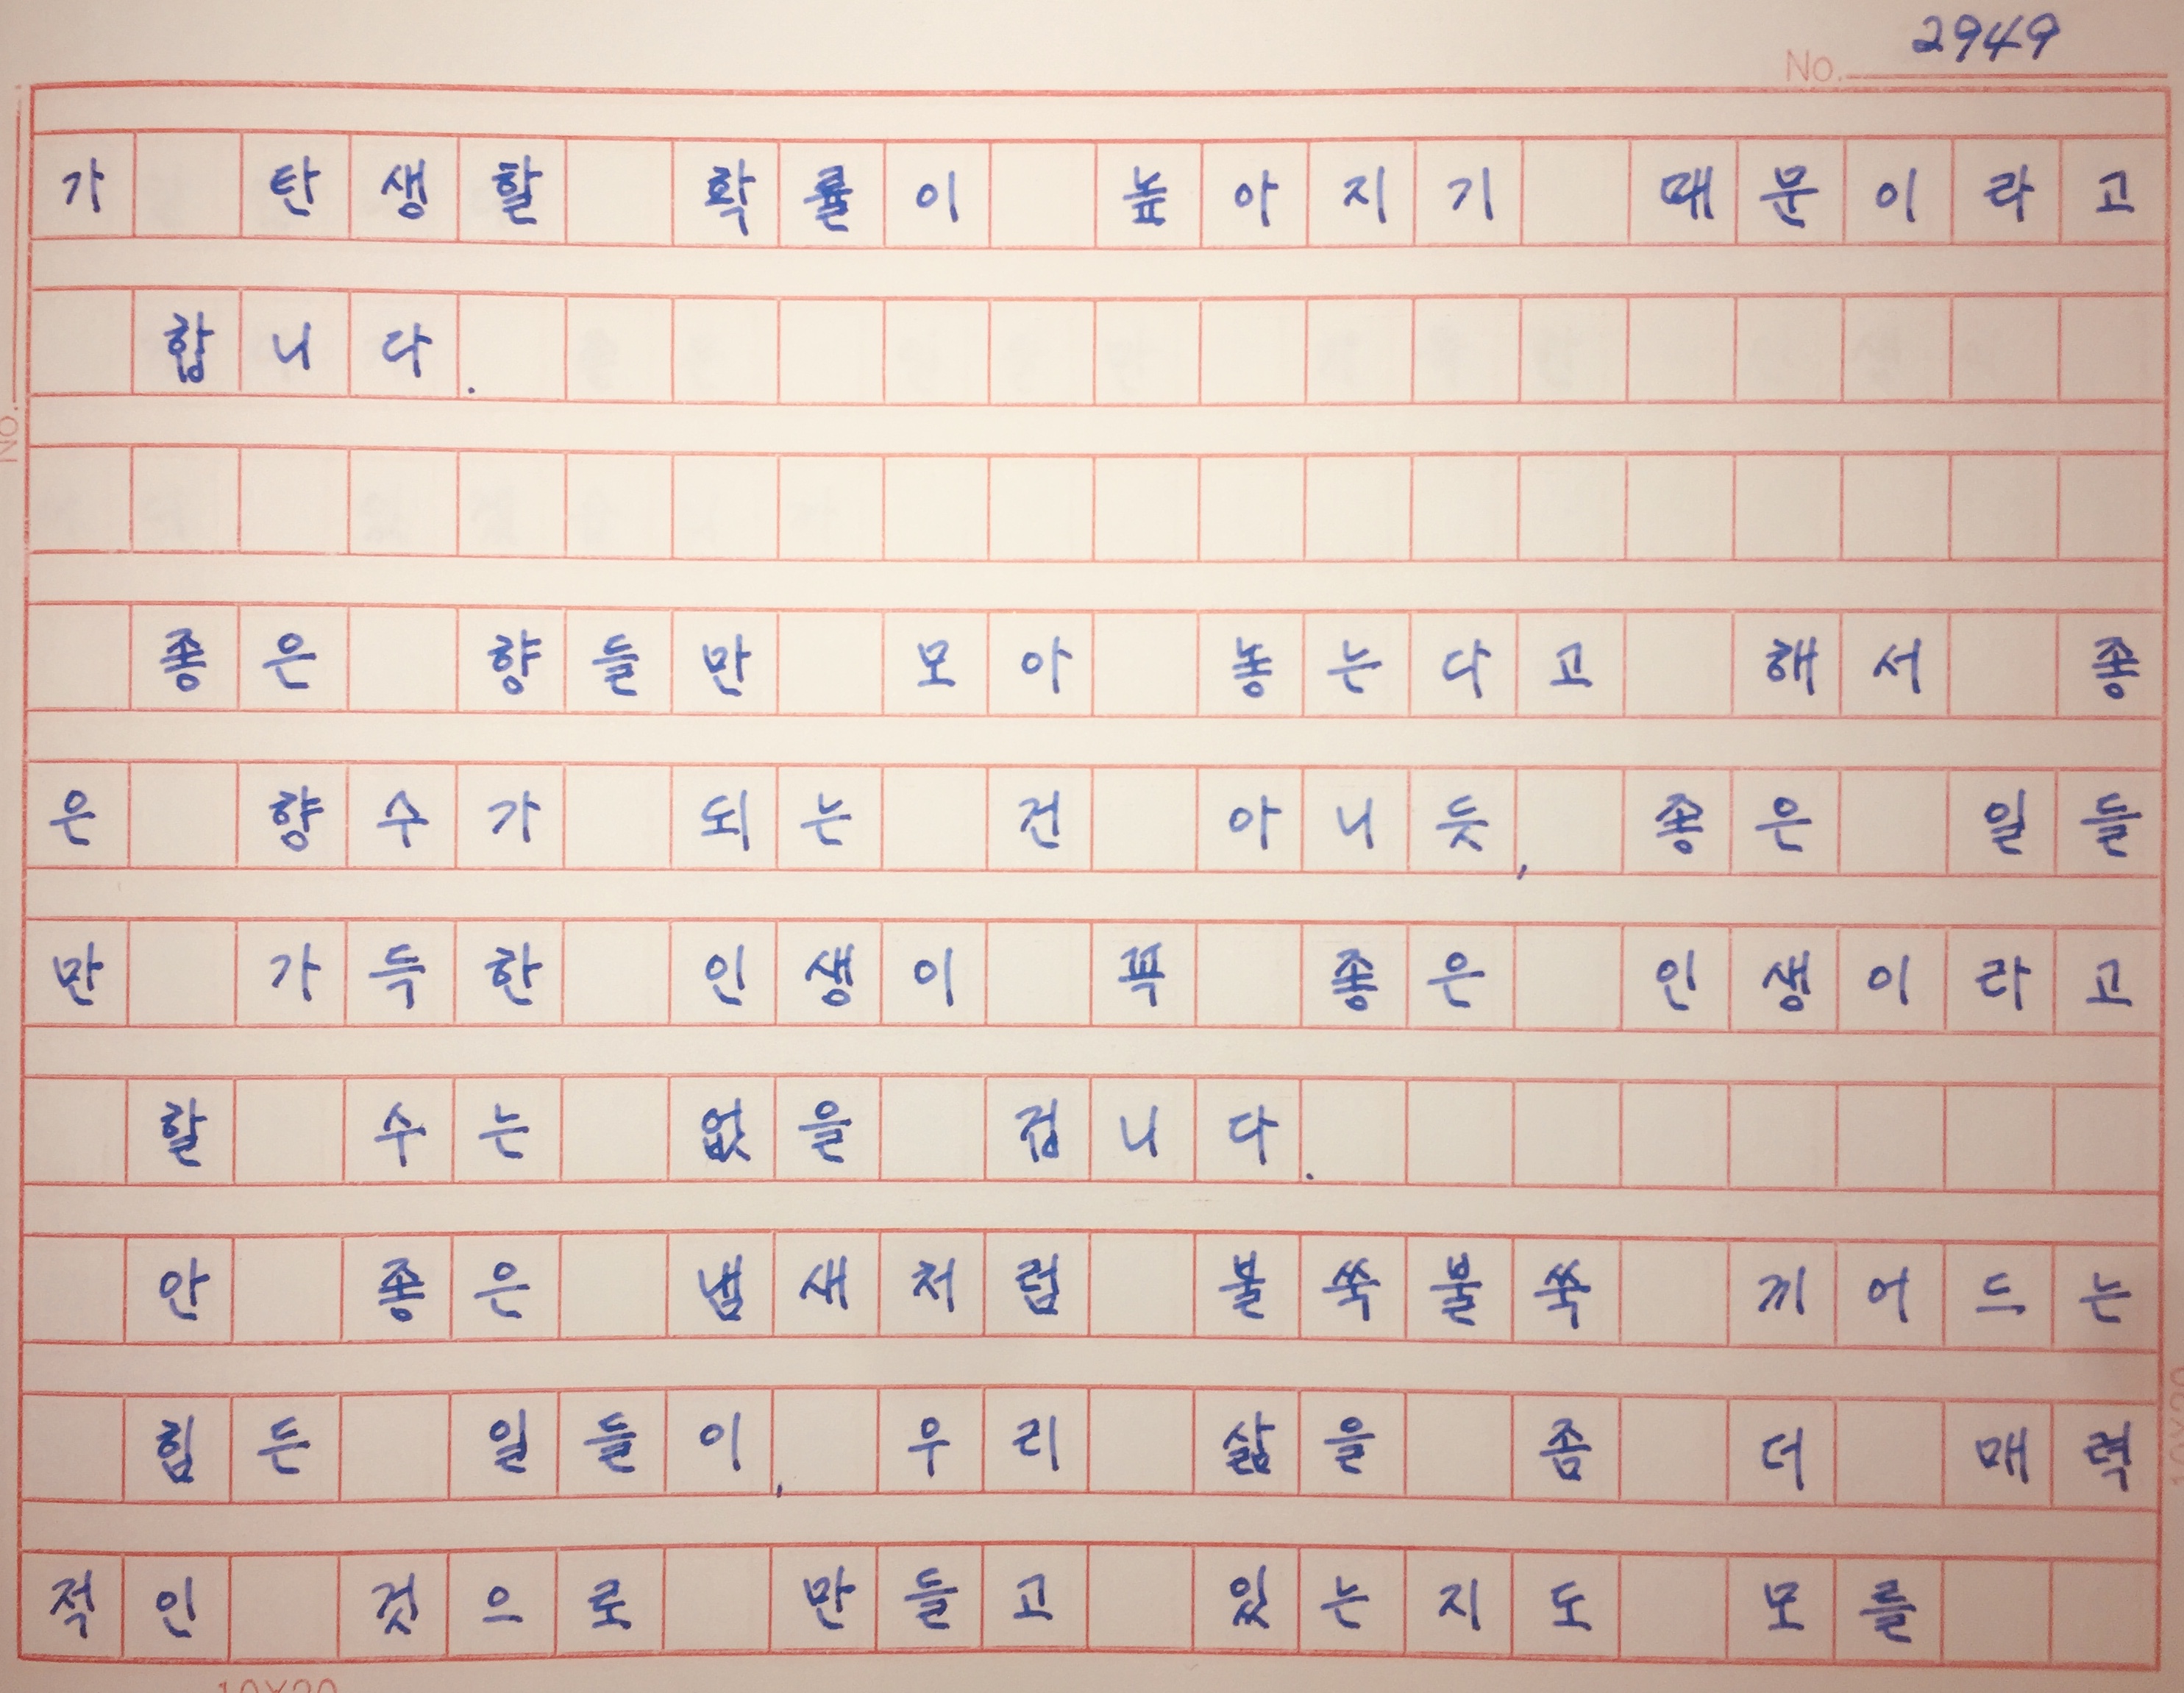 No. 2949
가 탄생할 확률이 높아지기 때문이라고
합니다.
좋은 향들만 모아 놓는다고 해서 좋
은 향수가 되는 건 아니듯, 좋은 일들
만 가득한 인생이 꼭 좋은 인생이라고
할 수는 없을 겁니다.
안 좋은 냄새처럼 불쑥불쑥 끼어드는
힘든 일들이, 우리 삶을 좀 더 매력
적인 것으로 만들고 있는지도 모를
No.